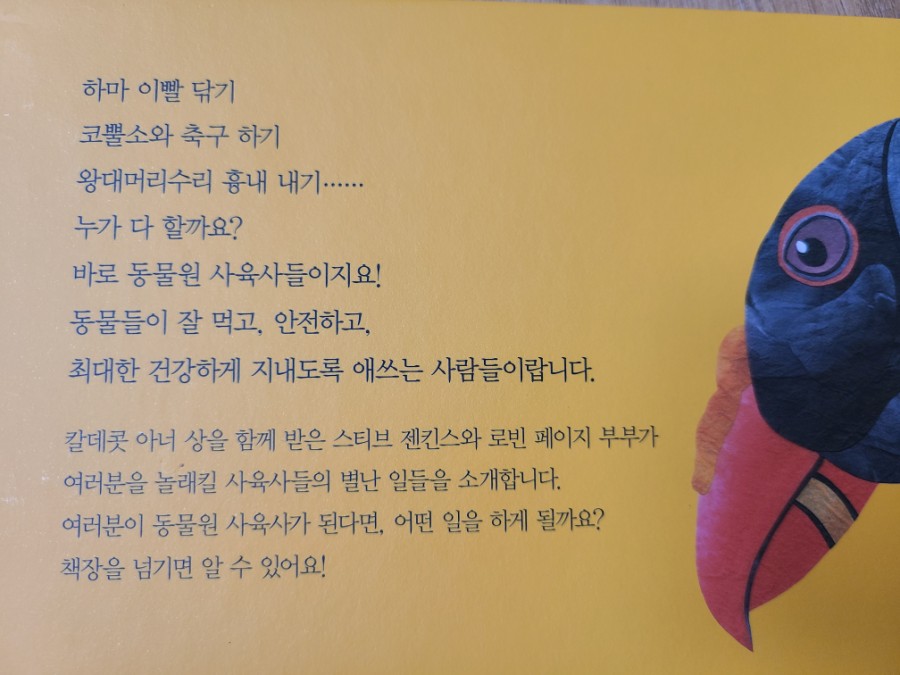 하마 이빨 닦기
코뿔소와 축구 하기
왕대머리수리 흉내 내기……
누가 다 할까요?
바로 동물원 사육사들이지요!
동물들이 잘 먹고, 안전하고,
최대한 건강하게 지내도록 애쓰는 사람들이랍니다.
칼데콧 아너 상을 함께 받은 스티브 젠킨스와 로빈 페이지 부부가
여러분을 놀래킬 사육사들의 별난 일들을 소개합니다.
여러분이 동물원 사육사가 된다면, 어떤 일을 하게 될까요?
책장을 넘기면 알 수 있어요!